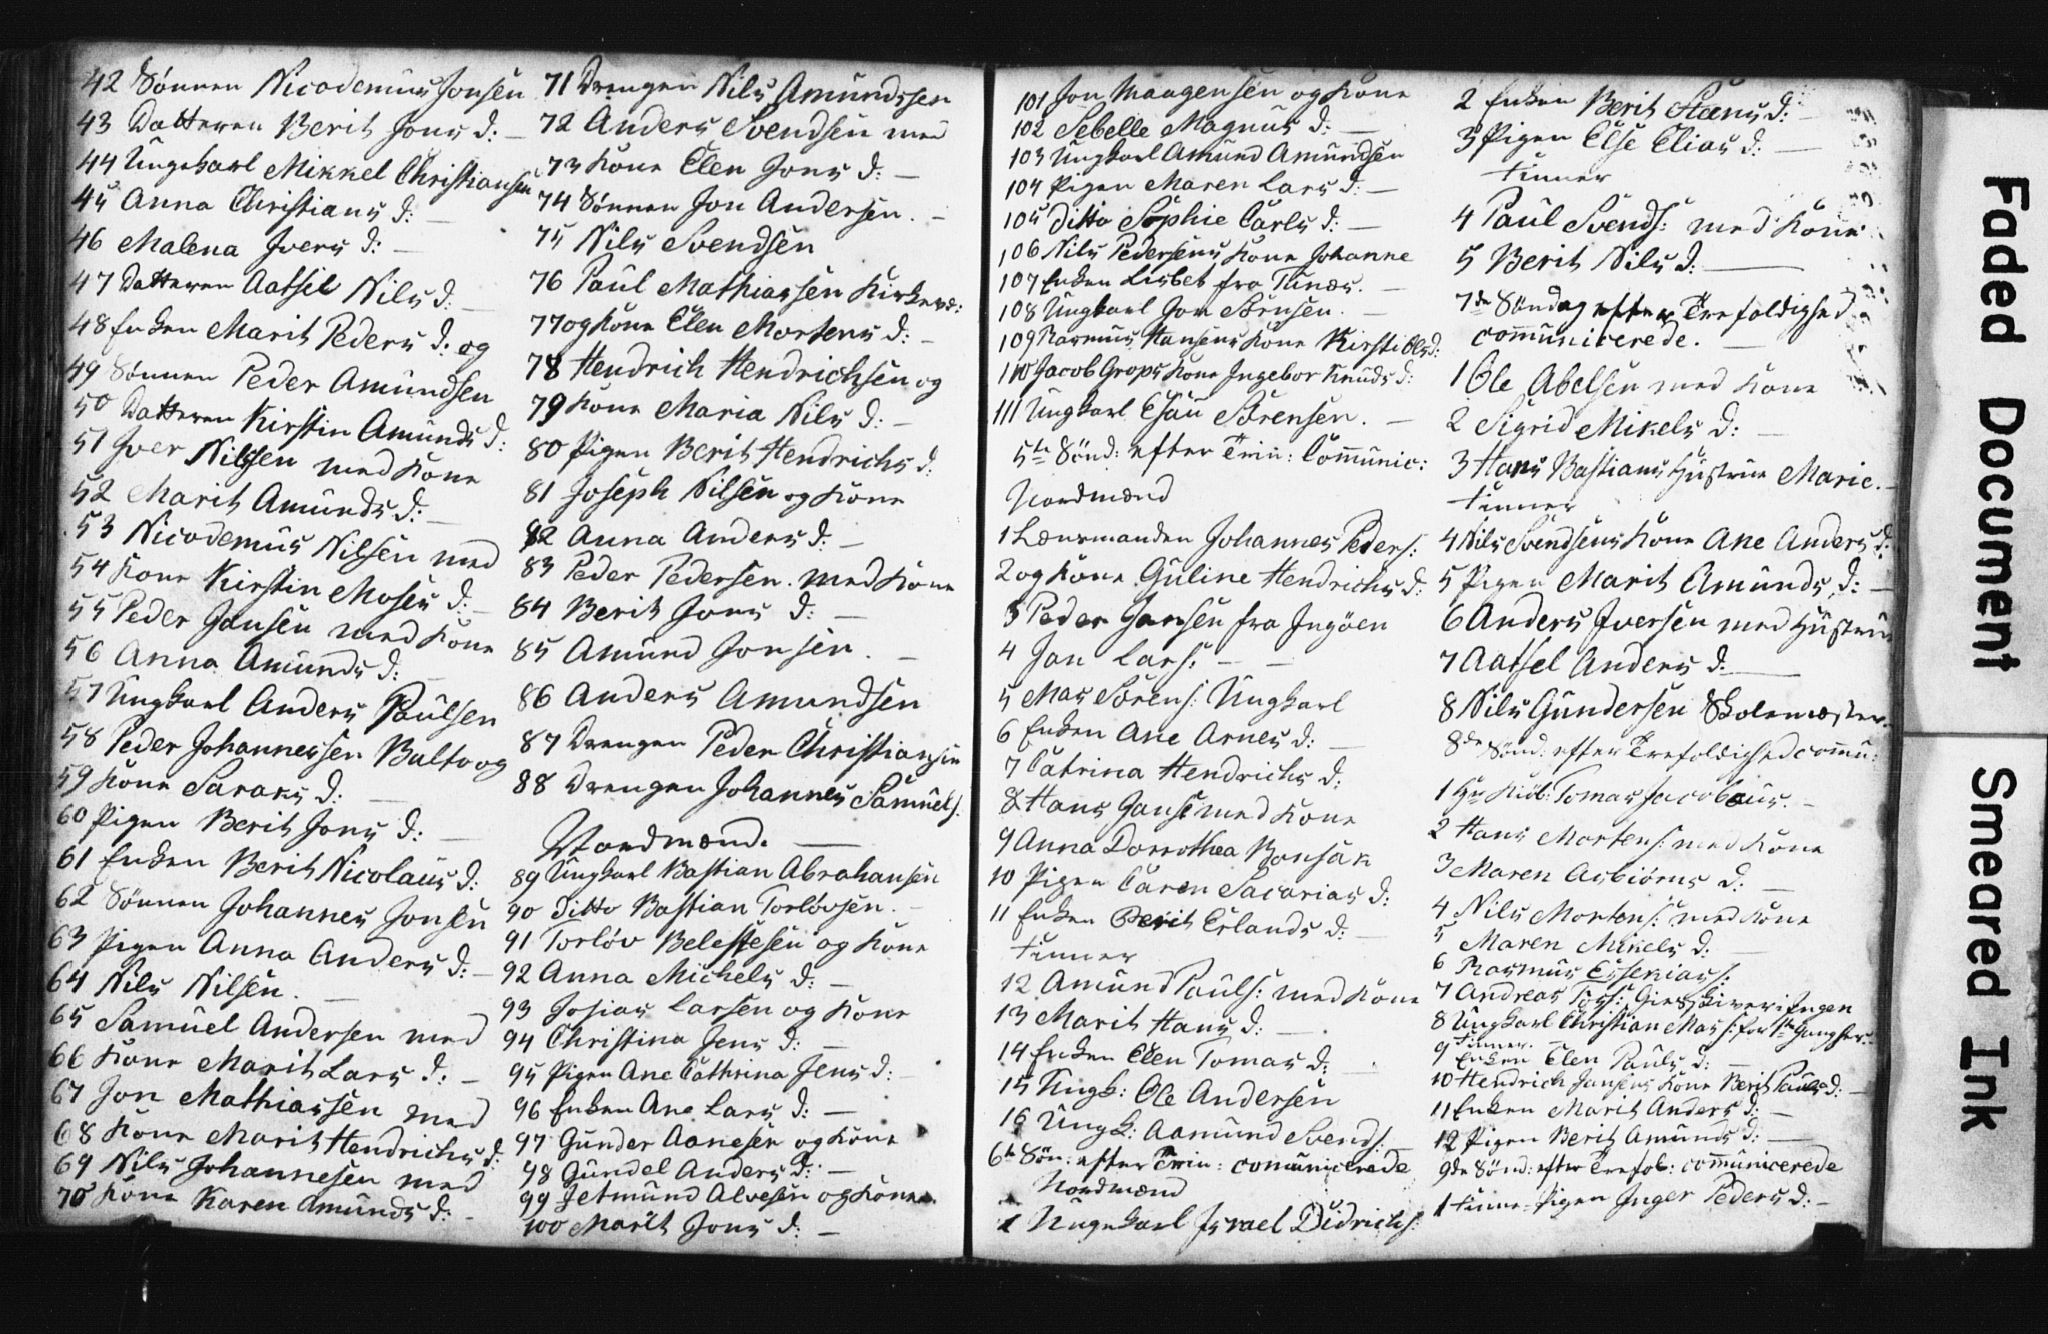 42 Sønnen Nicodemus Jonsen
43 Datteren Berit Jons d:
44 Ungekarl Mikkel Christiansen
45 Anna Christians d:
46 Malena Ivers d:
47 Datteren Aatsel Nils d:
48 Enken Marit Peders d: og
49 Sønnen Peder Amundsen
50 Datteren Kirstin Amunds d:
51 Iver Nilsen med Kone
52 Marit Amunds d:
53 Nicodemus Nilsen med
54 Kone Kirstin Moses d:
55 Peder Jansen med Kone
56 Anna Amunds d:
57 Ungkarl Anders Paulsen
58 Peder Johannessen Balto og
59 Kone Saraks d:
60 Pigen Berit Jons d:
61 Enken Berit Nicolaus d:
62 Sønnen Johannes Jonsen
63 Pigen Anna Anders d:
64 Nils Nilsen.
65 Samuel Andersen med
66 Kone Marit Lars d:
67 Jon Mathiassen med
68 Kone Marit Hendrichs d:
69 Nils Johannesen med
70 Kone Karen Amunds d:
71 Drengen Nils Amundssen
72 Anders Svendsen med
73 Kone Elen Jons d:
74 Sønnen Jon Andersen.
75 Nils Svendsen
76 Paul Mathiassen Kirkevæ:
77 og Kone Elen Mortens d:
78 Hendrich Hendrichsen og
79 Kone Maria Nils d:
80 Pigen Berit Hendrichs d:
81 Joseph Nilsen og Kone
82 Anna Anders d:
83 Peder Pedersen. med Kone
84 Berit Jons d:
85 Amund Jonsen.
86 Anders Amundsen
87 Drengen Peder Christiansen
88 Drengen Johannes Samuels:
Nordmænd.
89 Ungkarl Bastian Abrahansen
90 Ditto Bastian Torløvsen.
91 Torløv Belestesen og Kone
92 Anna Michels d:
93 Josias Larsen og Kone
94 Christina Jens d:
95 Pigen Ane Cathrina Jens d:
96 Enken Ane Lars d:
97 Gunder Aanesen og Kone
98 Gundel Anders d:
99 Jetmund Alvesen og Kone
100 Marit Jons d:
101 Jon Maagensen og Kone
102 Sebelle Magnus d:
103 Ungkarl Amund Amundsen
104 Pigen Maren Lars d:
105 Ditto Sophie Carls d:
106 Nils Pedersens Kone Johanne
107 Enken Lisbet fra Tunæs.
108 Ungkarl Jon Sørnsen.
109 Rasmus Hansens Kone Kirsti Ols d:
110 Jacob Grops Kone Ingebor Knuds d:
111 Ungkarl Esau Sørensen.
5te Sønd: efter Trin: Communic:
Nordmænd
1 Lænsmanden Johannes Peders:
2 og Kone Guline Hendrichs d:
3 Peder Jansen fra Ingøen
4 Jan Lars:
5 Mas Sørens: Ungkarl
6 Enken Ane Arnes d:
7 Catrina Hendrichs d:
8 Hans Jans: med Kone
9 Anna Dorrothea Bonsak
10 Pigen Caren Sacarias d:
11 Enken Berit Erlands d:
Finner
12 Amund Pauls: med Kone
13 Marit Hans d:
14 Enken Elen Tomas d:
15 Ungk: Ole Andersen
16 Ungk: Aamund Svends:
6te Søn: efter Trin: comunicerede
Nordmænd
1 Ungekarl Israel Didrichs:
2 Enken Berit Stæns d:
3 Pigen Else Elias d:
Finner
4 Paul Svends: med Kone
5 Berit Nils d:
7de Søndag efter Trefoldighed
communicerede.
1 Ole Abelsen med Kone
2 Sigrid Mikels d:
3 Hans Bastians Hustrue Marie.
Finner
4 Nils Svendsens Kone Ane Anders d:
5 Pigen Marit Amunds d:
6 Anders Iversen med Hustrue
7 Aatsel Anders d:
8 Nils Gundersen Skolemester
8de Sønd: efter Trefoldighed commu:
1 Hr Kiøb: Tomas Jacobæus.
2 Hans Mortens: med Kone
3 Maren Asbiørns d:
4 Nils Mortens: med Kone
5 Maren Mikels d:
6 Rasmus Essekias:
7 Andreas Tøs: Giestgiver i Ingen
8 Ungkarl Christian Mas: for 1te Gang her.
Finner.
9 Enken Elen Pauls d:
10 Hendrich Jansens Kone Berit Pauls d:
11 Enken Marit Anders d:
12 Pigen Berit Amunds d:
9de Sønd: efter Trefol: communicerede
1 Finne Pigen Inger Peders d:
Faded Document
Smeared Ink